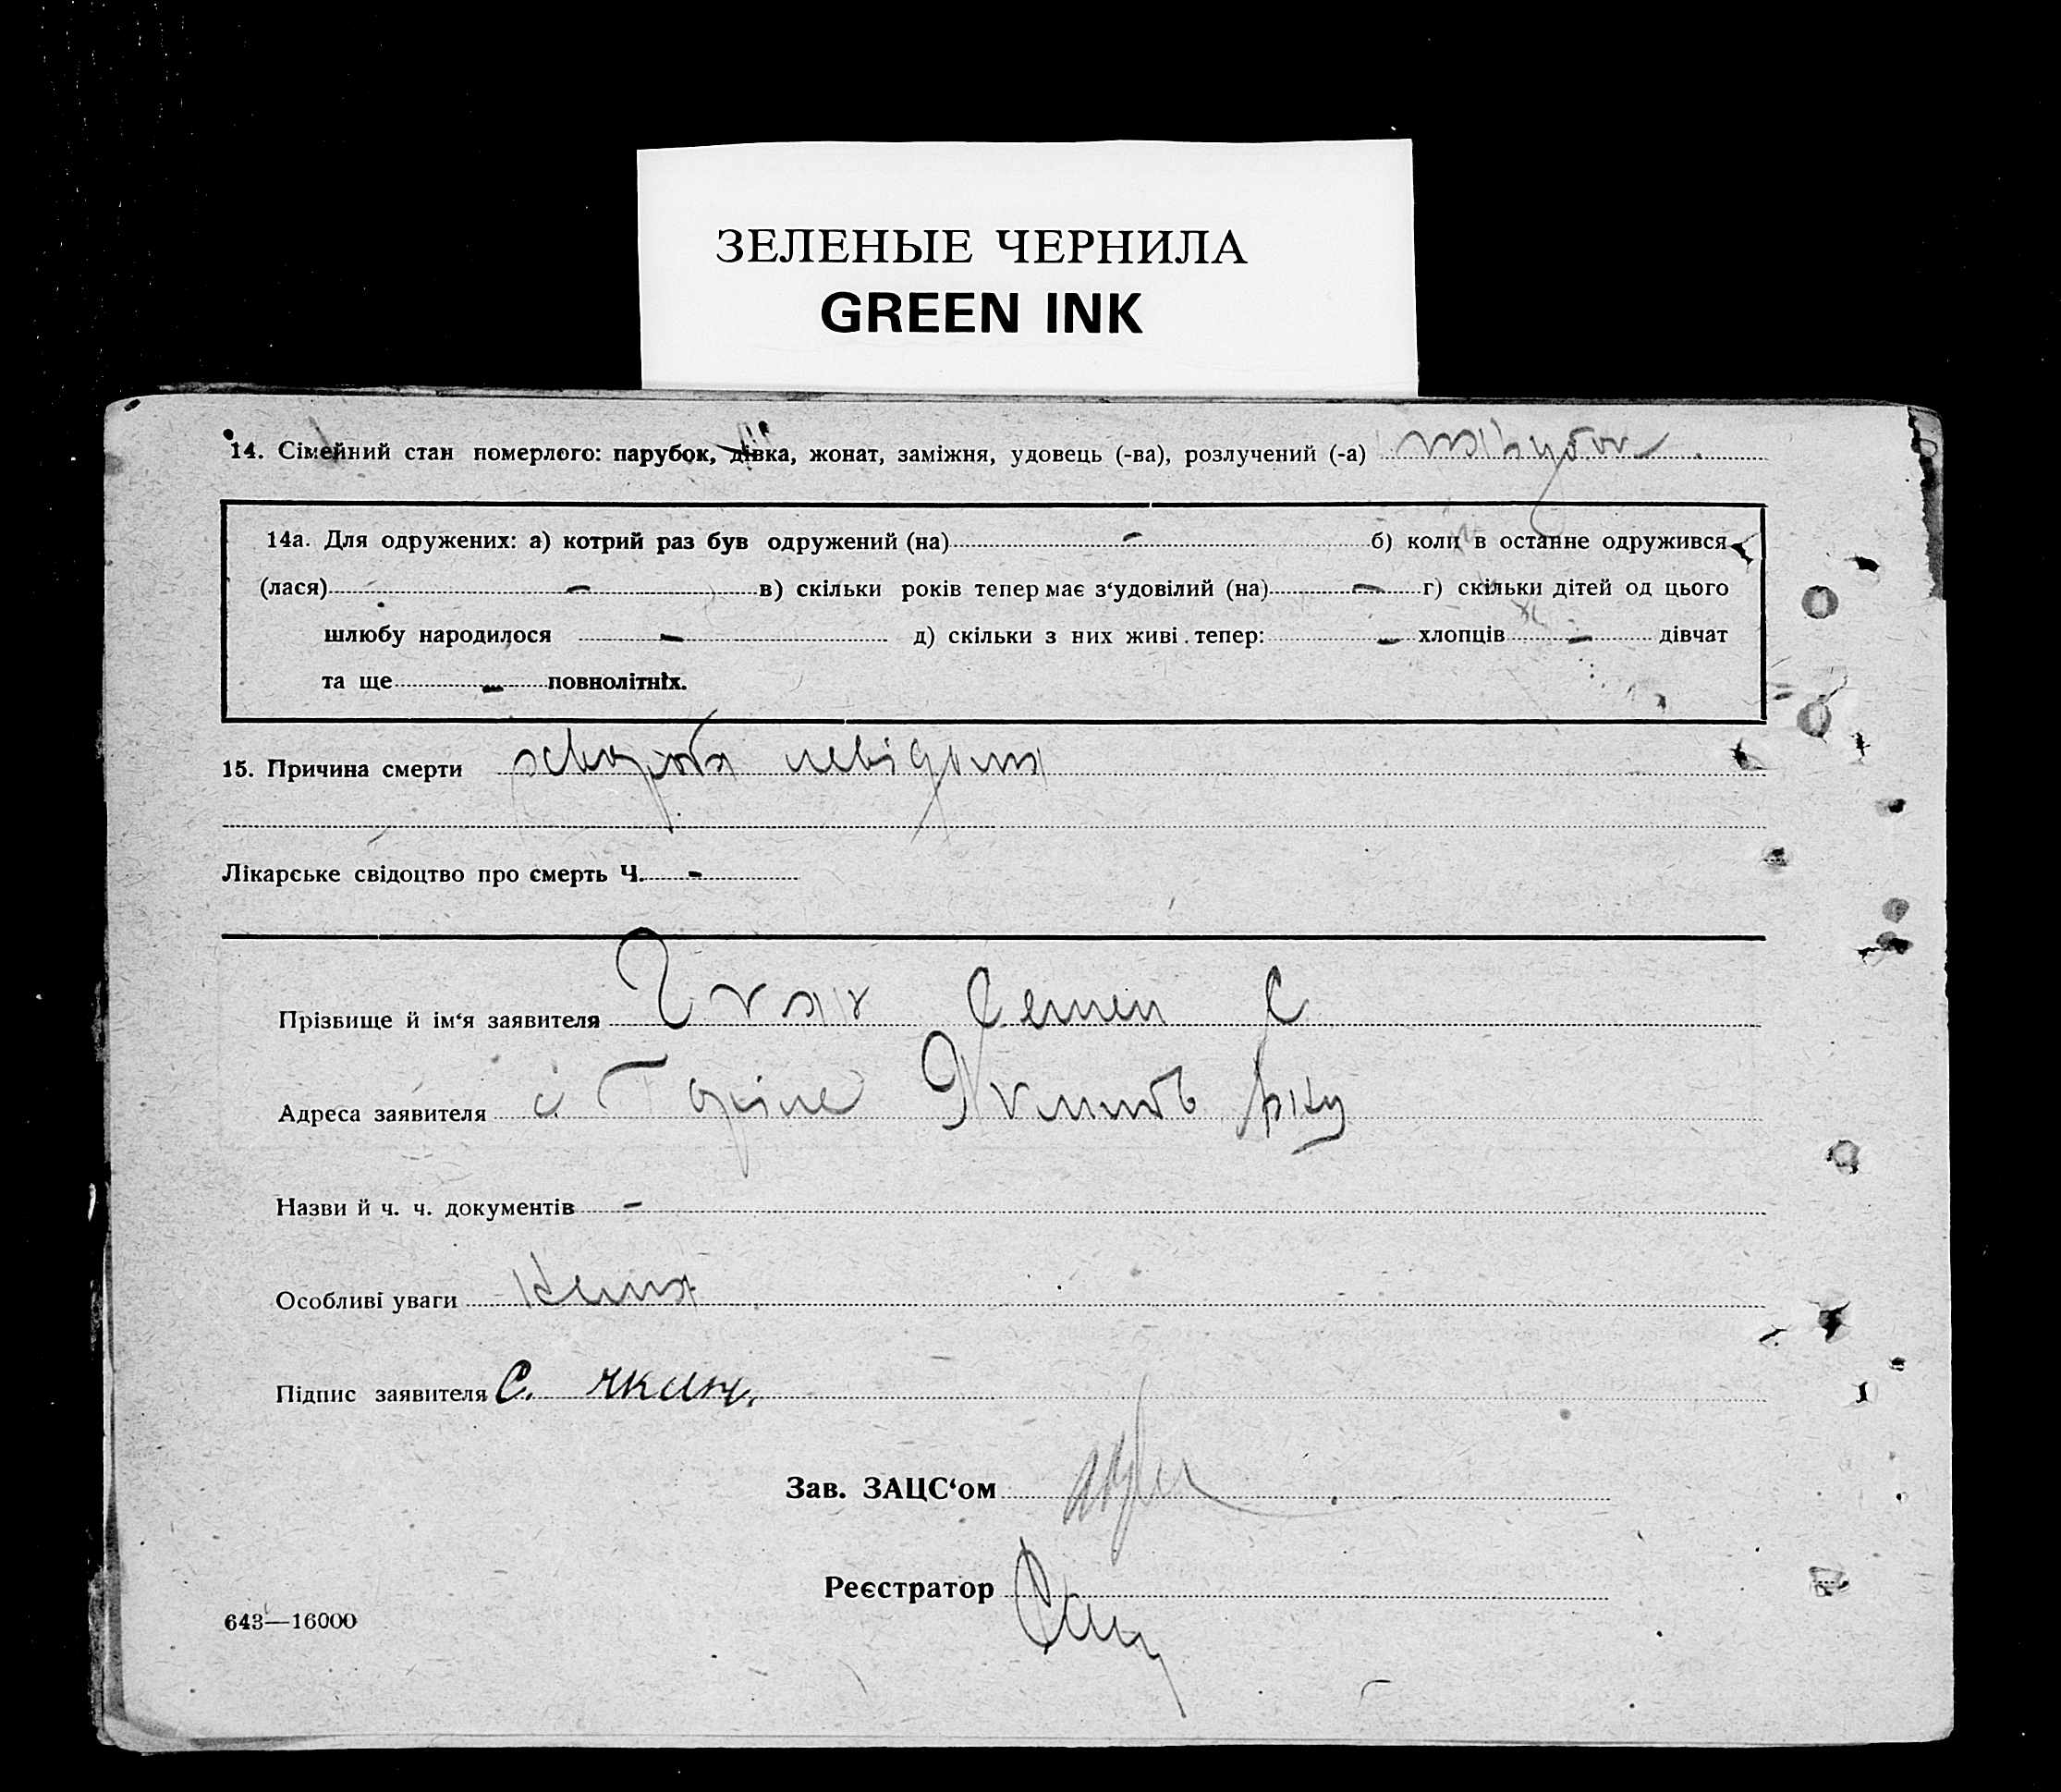 ЗЕЛЕНЫЕ ЧЕРНИЛА
GREEN INK
14. Сімейний стан померлого: парубок, дівка, жонат, заміжня, удовець (-ва), розлучений (-а) парубок
14а. Для одружених: а) котрий раз був одружений (на) - б) коли в останне одружився
(лася) - в) скільки років тепер має з‘удовілий (на) - г) скільки дітей од цього
шлюбу народилося - д) скільки з них живі тепер: - хлопців - дівчат
та ще - повнолітніх.
15. Причина смерти хвороба невідома
Лікарське свідоцтво про смерть Ч. -
Прізвище й ім‘я заявителя Семен С
Адреса заявителя с
Назви й ч. ч. документів -
Особливі уваги Нема
Підпис заявителя С.
Зав. ЗАЦС‘ом
Реєстратор
643—16000